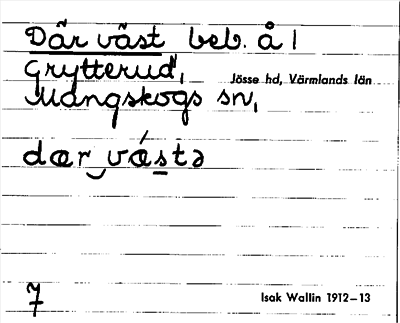 Där väst beb. å 1
Grytterud,
Jösse hd, Värmlands län
Mangskogs sn,
dær‿vǽstə
7
Isak Wallin 1912–13